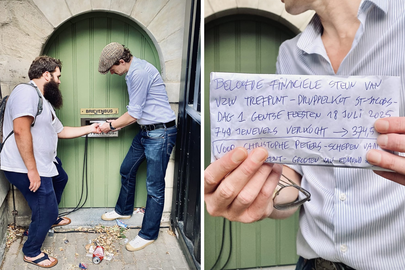 BRIEVENBUS
BELOFTE FINANCIËLE STEUN VAN
VZW TREFPUNT - DRUPPELKOT ST-JACOBS-
DAG 1 GENTSE FEESTEN 18 JULI 2025
749 JENEVERS VERKOCHT → 374,5
VOOR CHRISTOPHE PETERS - SCHEPEN VAN
GROETEN VAN